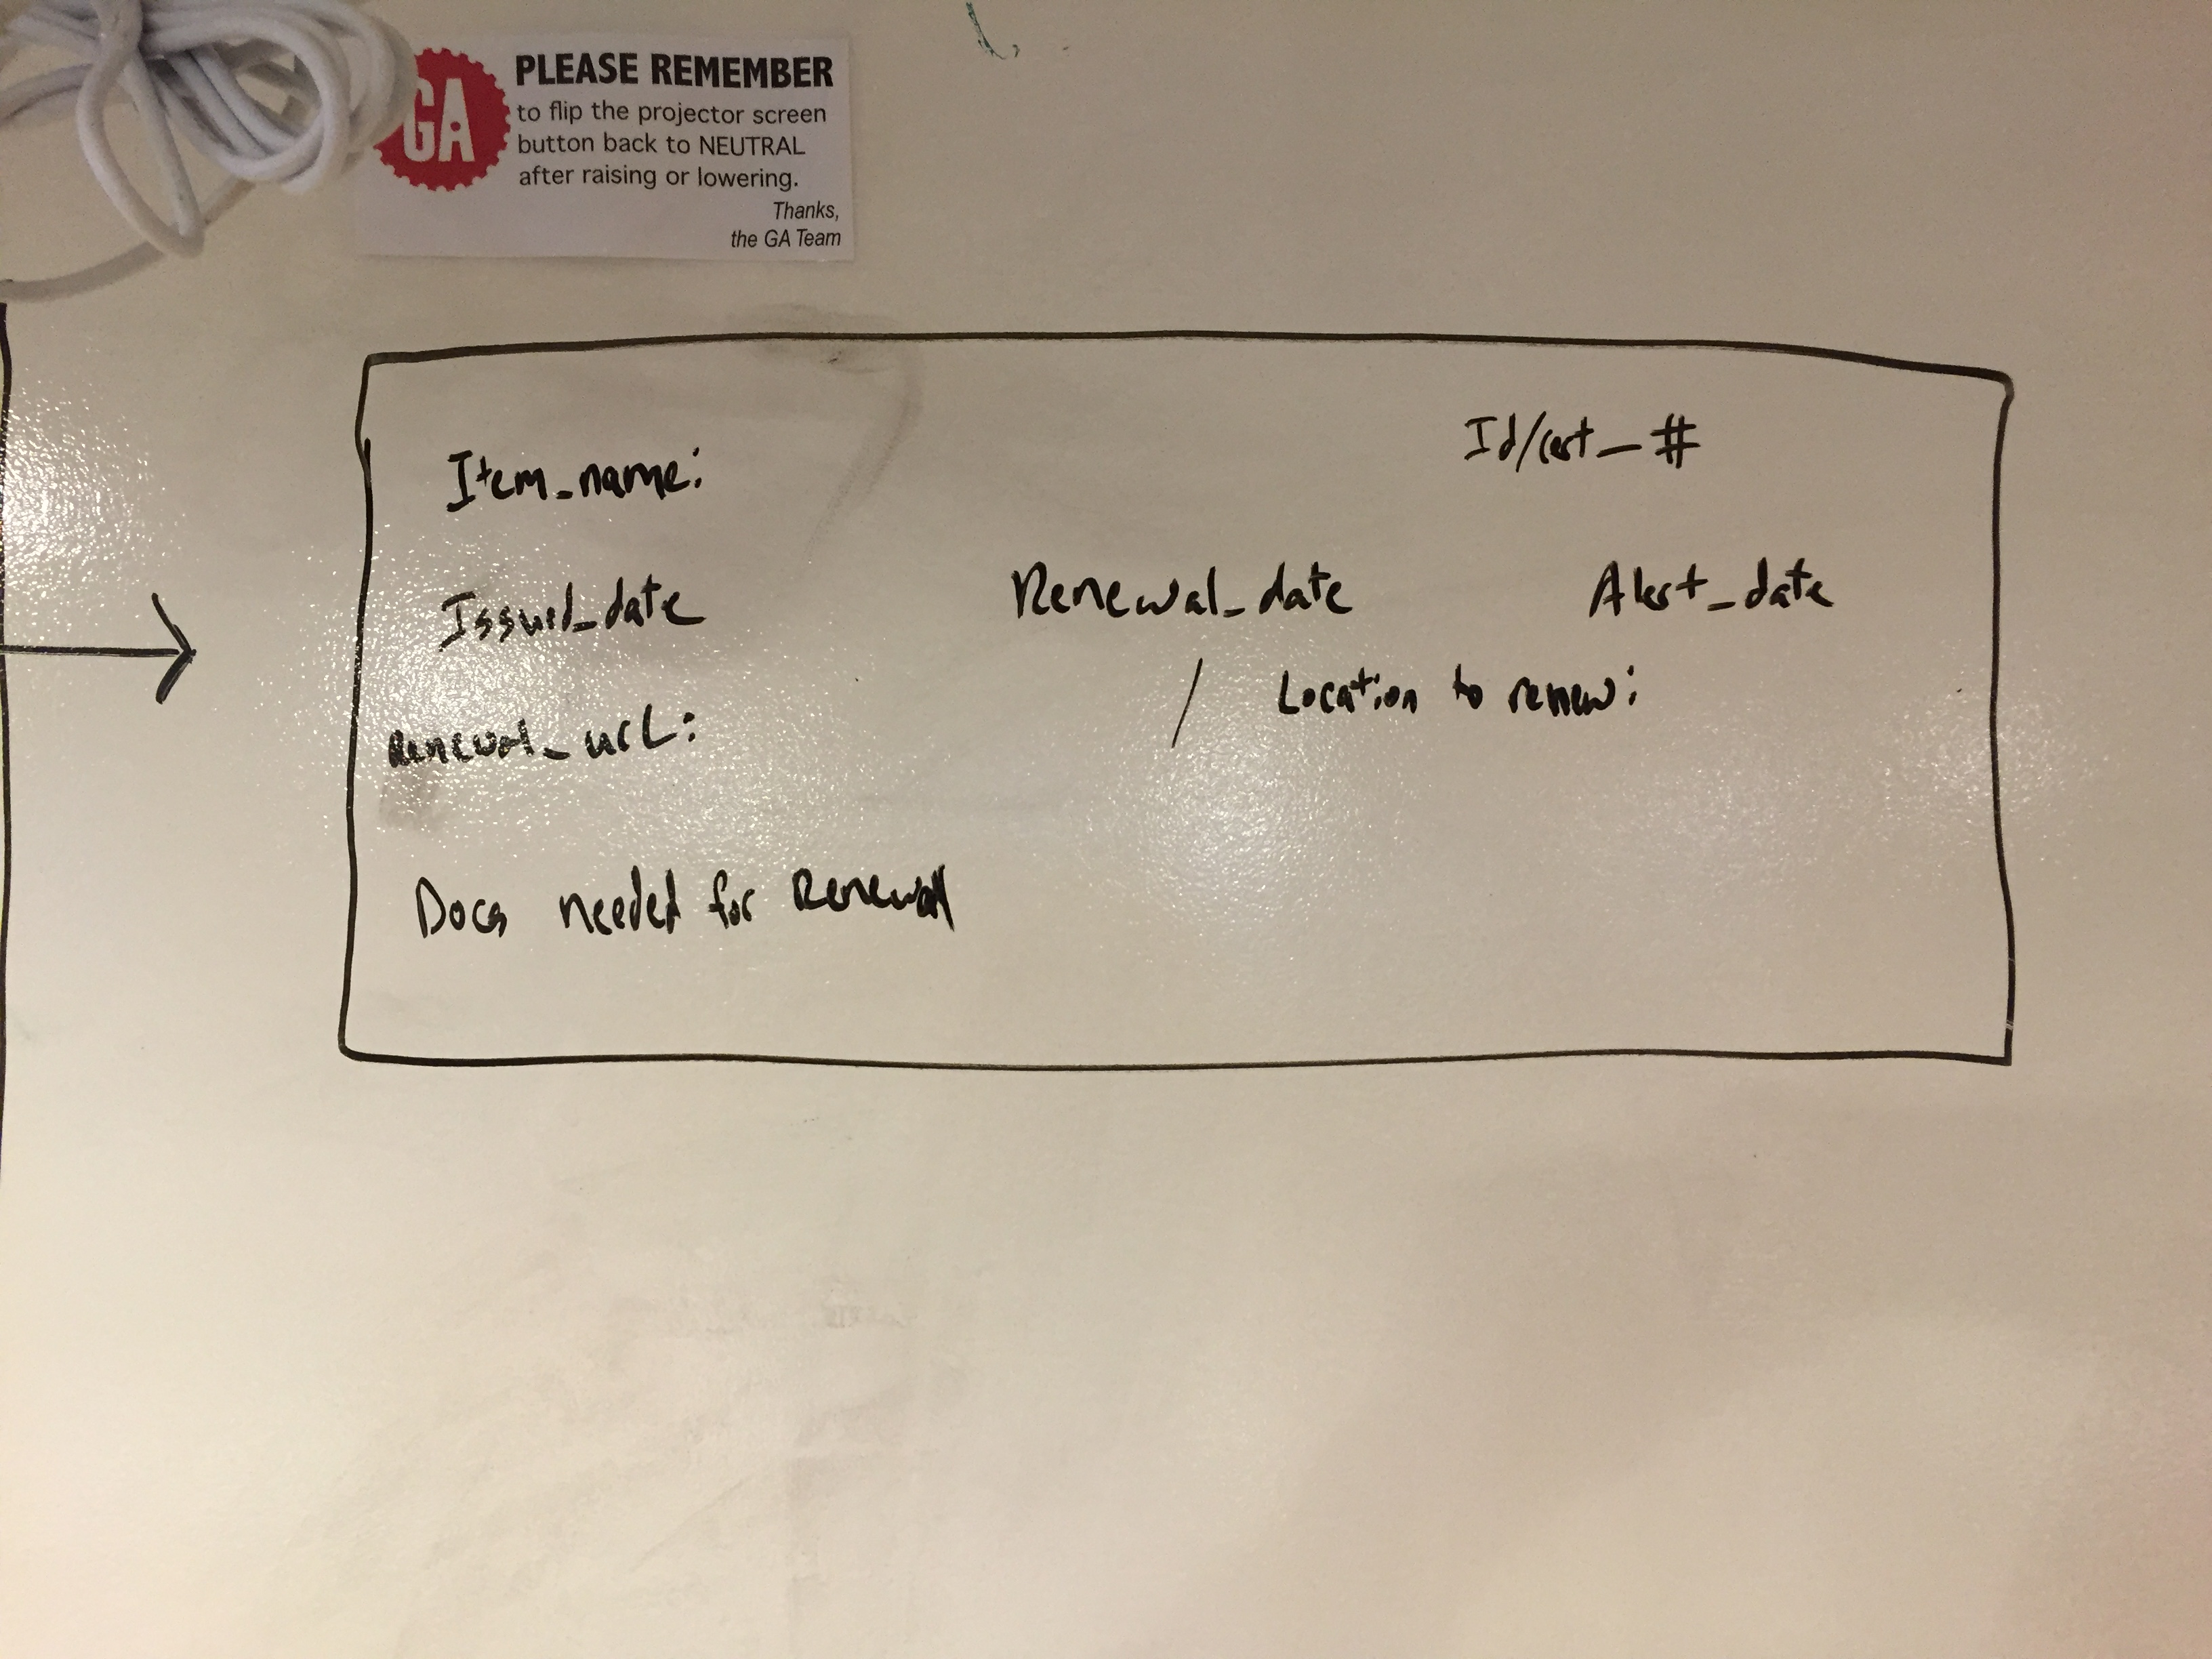 GA
PLEASE REMEMBER
to flip the projector screen
button back to NEUTRAL
after raising or lowering.
Thanks,
the GA Team
Item_name: Id/cert_#
Issued_date Renewal_date Alert_date
Renewal_url: / Location to renew:
Docs needed for Renewal